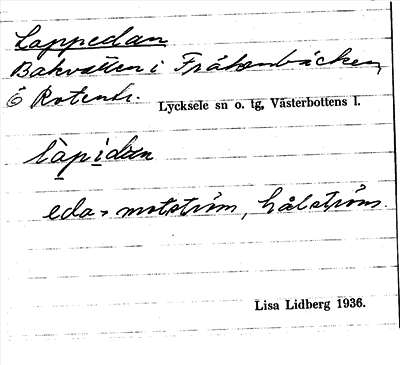 Lappedan
Bakvatten i Fråkenbäcken,
Ö Rotentr. Lycksele sn o. tg, Västerbottens l.
làpidan
eda = motström, hålström.
Lisa Lidberg 1936.